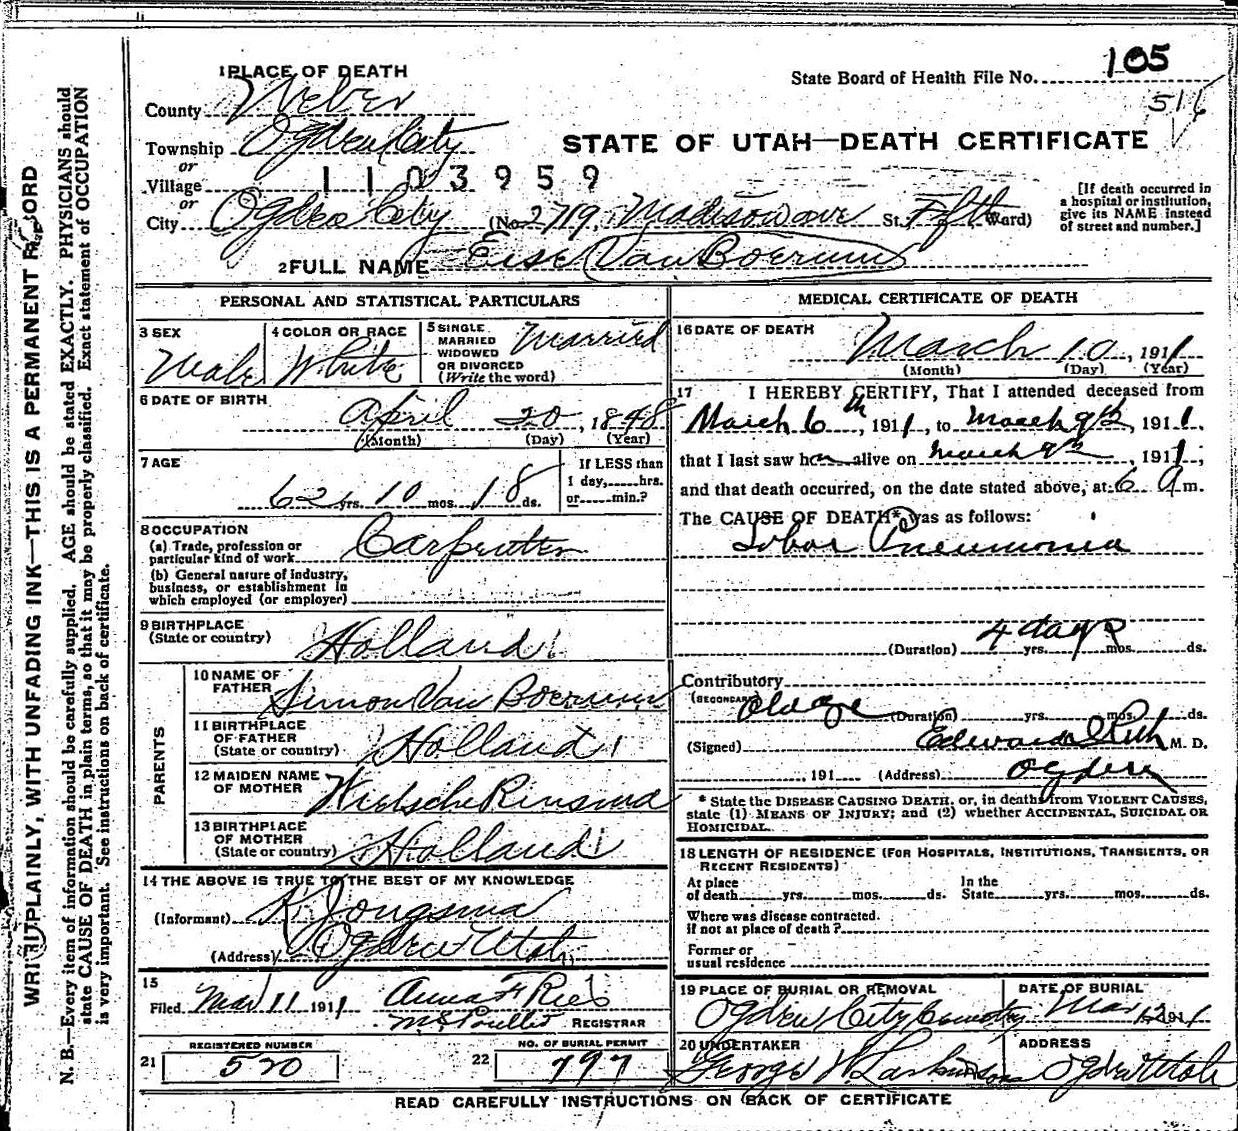 1 PLACE OF DEATH
State Board of Health File No. 105
516
County Weber
Township Ogden City
STATE OF UTAH—DEATH CERTIFICATE
or
Village
1103959
or
City Ogden City (No 2719. Madison ave St. Fifth Ward)
[If death occurred in
a hospital or institution,
give its NAME instead
of street and number.]
2 FULL NAME Eise Van Boerum
WRITE PLAINLY, WITH UNFADING INK—THIS IS A PERMANENT RECORD
N. B.—Every item of information should be carefully supplied. AGE should be stated EXACTLY. PHYSICIANS should
state CAUSE OF DEATH in plain terms, so that it may be properly classified. Exact statement of OCCUPATION
is very important. See instructions on back of certificate.
PERSONAL AND STATISTICAL PARTICULARS
3 SEX
Male
4 COLOR OR RACE
White
5 SINGLE
MARRIED
WIDOWED
OR DIVORCED
(Write the word)
Married
6 DATE OF BIRTH
April 20, 1848
(Month) (Day) (Year)
7 AGE
62 yrs. 10 mos. 18 ds.
If LESS than
1 day,.....hrs.
or.....min.?
8 OCCUPATION
(a) Trade, profession or
particular kind of work Carpenter
(b) General nature of industry,
business, or establishment in
which employed (or employer)
9 BIRTHPLACE
(State or country) Holland
PARENTS
10 NAME OF
FATHER Simon Van Boerum
11 BIRTHPLACE
OF FATHER
(State or country) Holland
12 MAIDEN NAME
OF MOTHER Wietsche Rinsma
13 BIRTHPLACE
OF MOTHER
(State or country) Holland
14 THE ABOVE IS TRUE TO THE BEST OF MY KNOWLEDGE
(Informant) K Jongsma
(Address) Ogden Utah
15
Filed Mar 11 1911 Anna F Ries
REGISTRAR
REGISTERED NUMBER
21 520
NO. OF BURIAL PERMIT
22 797
MEDICAL CERTIFICATE OF DEATH
16 DATE OF DEATH
March 10, 1911
(Month) (Day) (Year)
17 I HEREBY CERTIFY, That I attended deceased from
March 6th, 1911, to March 9th, 1911,
that I last saw him alive on March 9th, 1911;
and that death occurred, on the date stated above, at 6 a m.
The CAUSE OF DEATH* was as follows:
Lobar Pneumonia
(Duration) 4 days yrs. mos. ds.
Contributory
(SECONDARY) Old age (Duration) yrs. mos. ds.
(Signed) Edward I Rich M. D.
, 191 (Address) Ogden
* State the DISEASE CAUSING DEATH, or, in deaths from VIOLENT CAUSES,
state (1) MEANS OF INJURY; and (2) whether ACCIDENTAL, SUICIDAL OR
HOMICIDAL.
18 LENGTH OF RESIDENCE (FOR HOSPITALS, INSTITUTIONS, TRANSIENTS, OR
RECENT RESIDENTS)
At place
of death yrs. mos. ds.
In the
State yrs. mos. ds.
Where was disease contracted.
if not at place of death?
Former or
usual residence
19 PLACE OF BURIAL OR REMOVAL
Ogden City Cemetery
DATE OF BURIAL
Mar 12 1911
20 UNDERTAKER
George W. Larkin & Sons
ADDRESS
Ogden Utah
READ CAREFULLY INSTRUCTIONS ON BACK OF CERTIFICATE